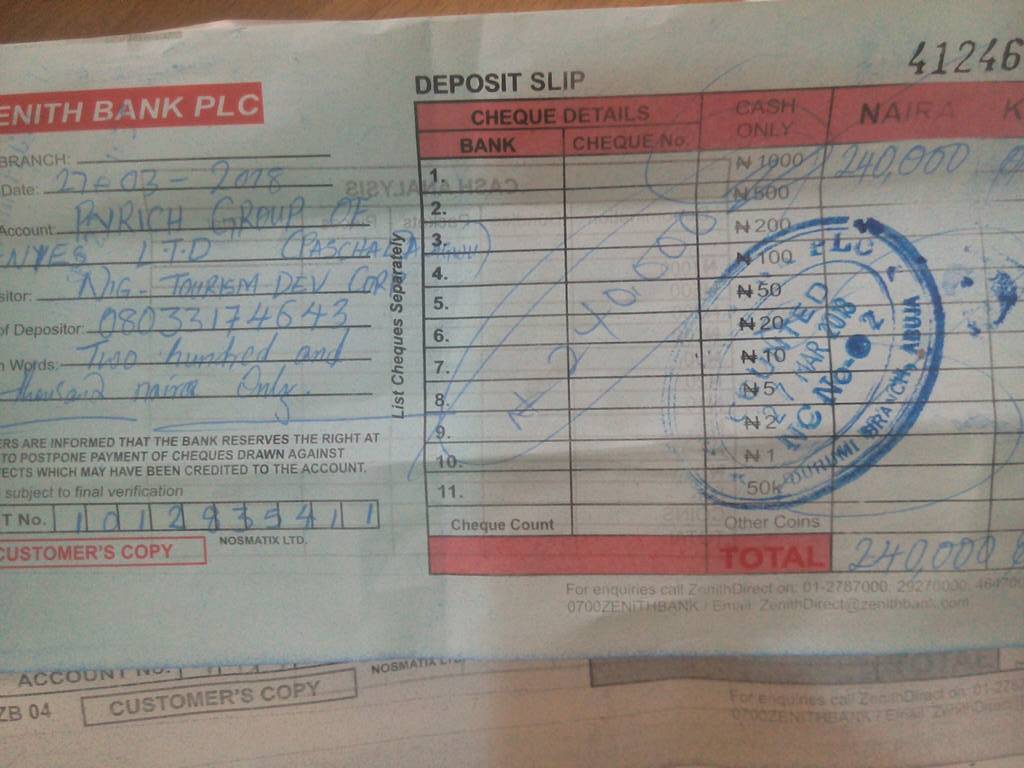 ENITH BANK PLC
BRANCH:
Date: 27-03-2018
Account PAYRICH GROUP OF
LTD (PASCHAL
sitor: NIG-TOURISM DEV COR
of Depositor: 08033174643
n Words: Two hundred and
thousand naira Only.
ERS ARE INFORMED THAT THE BANK RESERVES THE RIGHT AT
TO POSTPONE PAYMENT OF CHEQUES DRAWN AGAINST
FECTS WHICH MAY HAVE BEEN CREDITED TO THE ACCOUNT.
subject to final verification
T No.
CUSTOMER'S COPY
NOSMATIX LTD.
41246
DEPOSIT SLIP
CHEQUE DETAILS
CASH ONLY
NAIRA K
BANK CHEQUE No.
List Cheques Separately
1. ₦ 1000 240,000
2. ₦ 500
3. ₦ 200
4. ₦ 100
5. ₦ 50
6. ₦ 20
7. ₦ 10
8. ₦ 5
9. ₦ 2
10. ₦ 1
11. 50k
Cheque Count Other Coins
TOTAL 240,000
₦ 240,000
PLC
COUNTED
27 MAR 2018
NC NO-2
BRANCH, ABUJA
For enquiries call ZenithDirect on: 01-2787000. 29270000.
0700ZENITHBANK / Email: ZenithDirect@zenithbank.com
ACCOUNT NO.
NOSMATIX LTD
ZB 04
CUSTOMER'S COPY
TOTAL
For enquiries call ZenithDirect on: 01-2787
0700ZENITHBANK / Email: Zenith